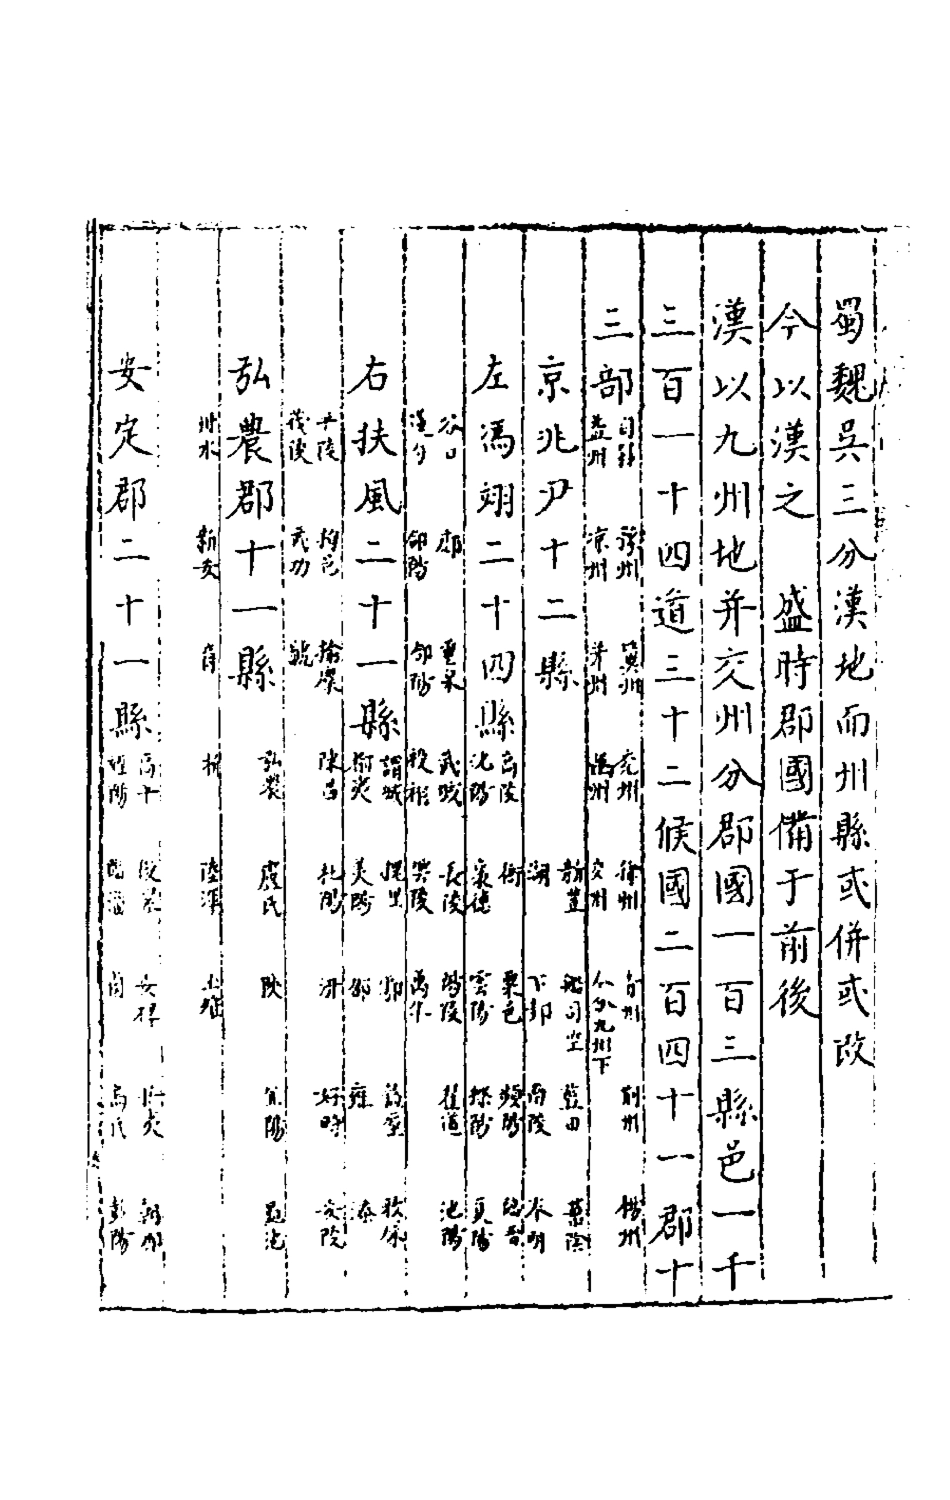 蜀魏吳三分漢地而州縣或併或改
今以漢之 盛時郡國備于前後
漢以九州地并交州分郡國一百三縣邑一千
三百一十四道三十二候國二百四十一郡十
三部 司隸 豫州 冀州 兖州 徐州 青州 荆州 楊州
益州 凉州 并州 幽州 交州 今分九州下
京兆尹十二縣 新豐 船司空 藍田 華陰
湖 下邽 南陵 奉明
左馮翊二十四縣 高陵 衙 粟邑 頻陽 臨晉
沈陽 襄德 雲陽 櫟陽 夏陽
谷口 鄜 重泉 武城 長陵 陽陵 翟道 池陽
蓮勺 郃陽 祋祤 萬年
右扶風二十一縣 謂城 槐里 鄠 盩厔
美陽 郿 雍 漆
平陵 栒邑 隃麋 陳倉 杜陽 汧 好畤 安陵
茂陵 武功 虢
弘農郡十一縣 弘農 盧氏 陜 宜陽 黽池
丹水 新安 商 析 陸渾 上雒
安定郡二十一縣 高平 安 朝那
涇陽 鹵 烏氏 彭陽